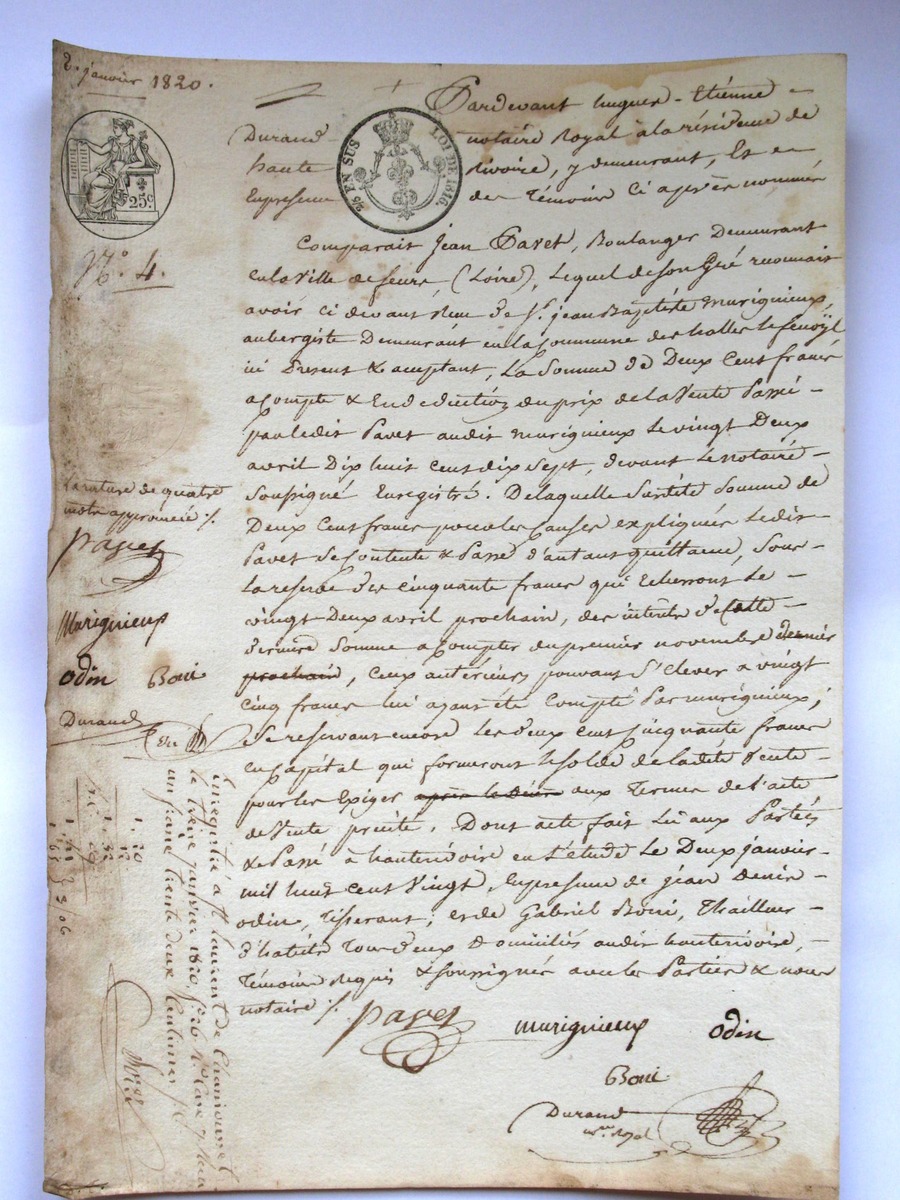 2. janvier 1820.
Pardevant hugues-Etienne
Durand notaire Royal à la résidence de
haute Rivoire, y demeurant, Et en
Enpresence des Témoins Ci après nommés
25 EN SUS LOI DE 1816.
25c
N.° 4.
Comparait Jean Pavet, Boulanger Demeurant
en la Ville de feurs, (Loire), Lequel de Son Gré reconnait
avoir ci devant Reçu de Sr. jean Baptiste Murignieux,
aubergiste Demeurant en la Commune des halles Le fenoÿl
ici Present & acceptant, La Somme de Deux Cent francs
acompte & En deduction du prix de la Vente Passée
par ledit Pavet audit murignieux Le vingt Deux
avril Dix huit Cent dix Sept, devant Le notaire
Soussigné Enregistré. De laquelle Somme de
Deux Cent francs pour les Causes expliquées Ledit
Pavet Se Contente & Passe d'autant quittance, Sous
La reserve des cinquante francs qui Echerront Le
vingt Deux avril prochain, des intérêts de Cette
derniere Somme a Compter du premier novembre dernier
prochain, Ceux antérieurs pouvant S'elever a vingt
Cinq francs lui ayant été Compté Par murignieux;
Se reservant encore Les deux cent cinquante francs
en Capital qui formeront le Solde de ladite Vente
pour les Exiger aux Termes de l'acte
de Vente precité. Dont acte fait Lu aux Parties
& Passé à hauterivoire en L'étude Le Deux janvier
mil huit Cent Vingt, Enpresence de jean denis
odin, Tisserant; et de Gabriel Boni, Thailleur
d'habits Tous deux Domiciliés audit hauterivoire,
Témoins Requis & Soussignés avec les Parties & nous
notaire ./.
La rature de quatre
mots approuvée ./.
Pavet
Murignieux
odin Boni
Durand
Pavet murignieux odin
Boni
Durand
nre Royal
Enregistré à St. Laurent de Chamousset
le treize janvier 1820, fo. 26
un franc trente deux Centimes